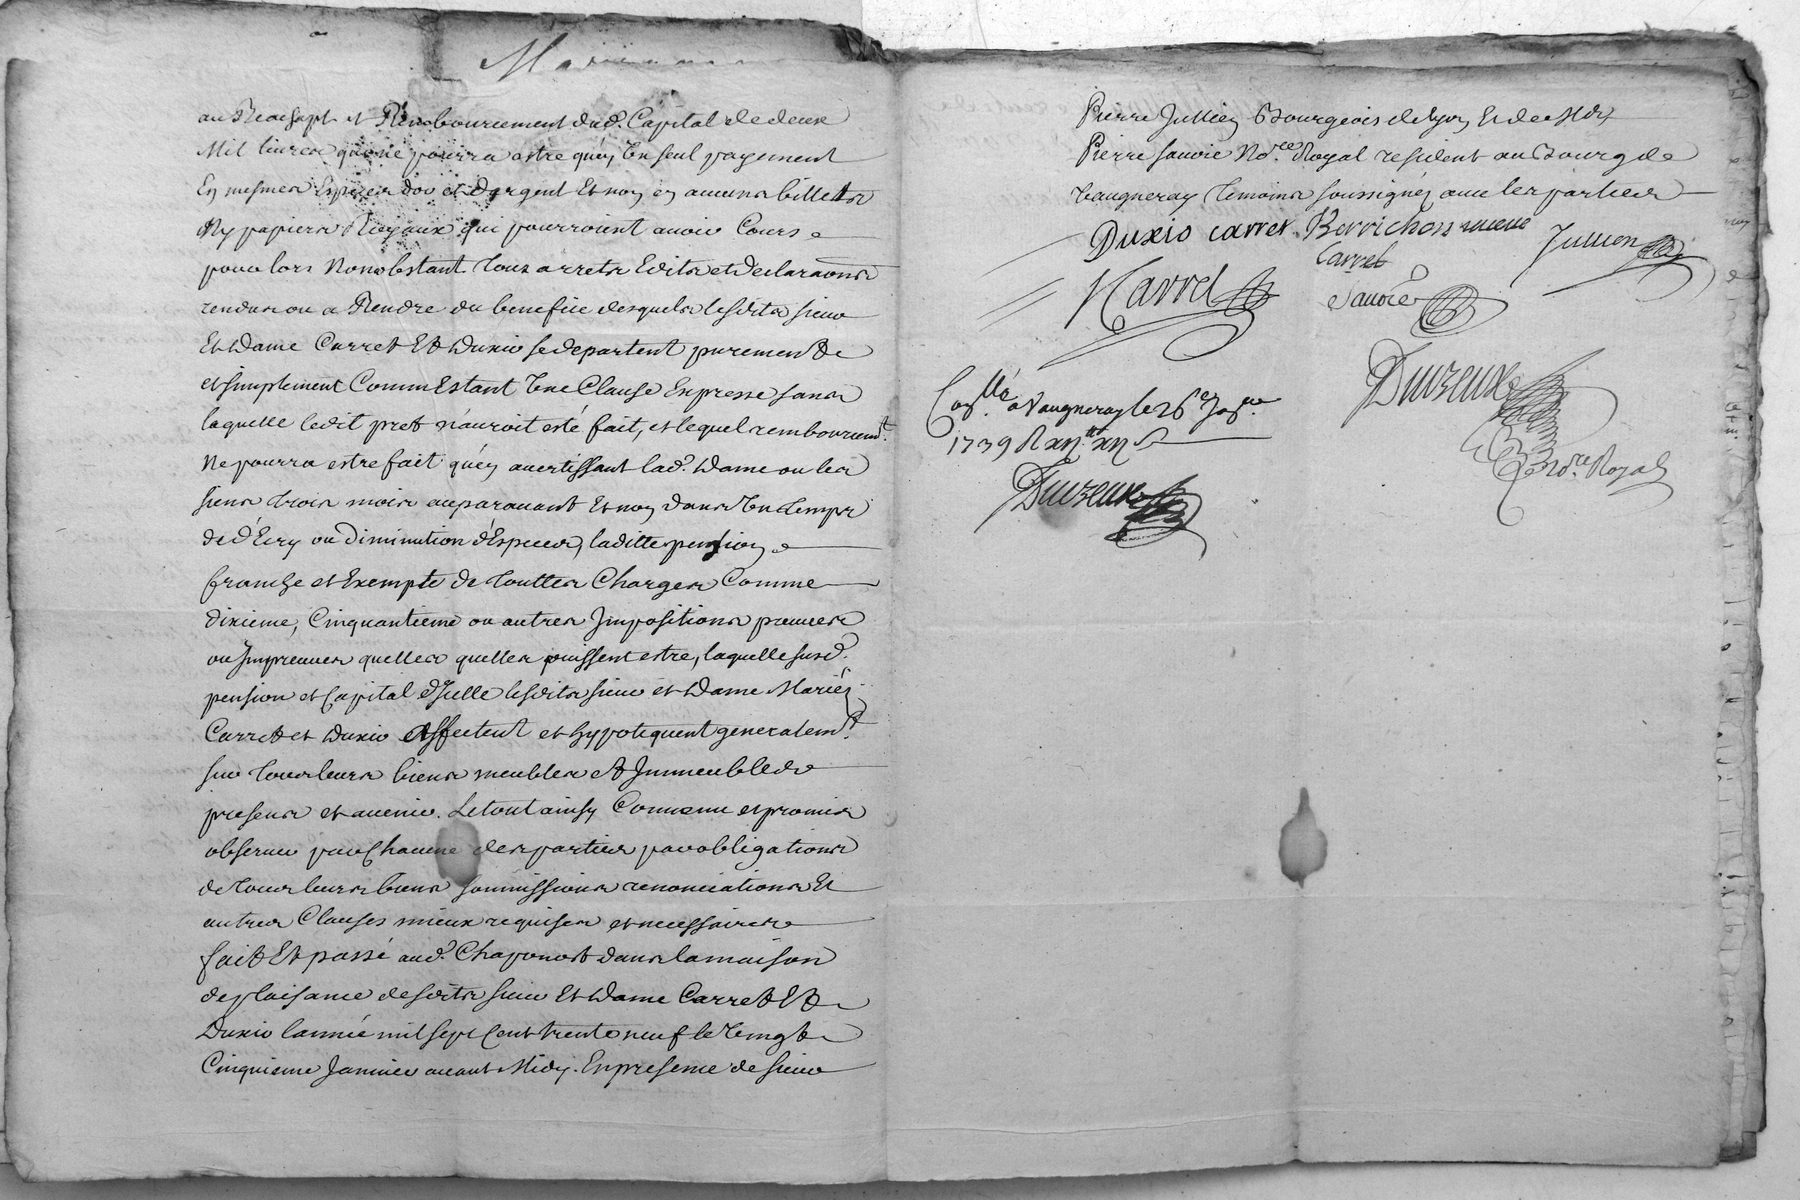 au Reachapt et Remboursement dud. Capital de deux
Mil livres qui ne pourra estre quen Un seul payement
En mesmes Especes dor et dargent Et non en aucuns billets
Ny papiers Royaux qui pourroient avoir Cours
pour lors Nonobstant Tous arrets Edits et declaraons
rendus ou a Rendre du benefice desquels lesdits sieur
Et Dame Carret Et Duxio se departent purement
et simplement Comm Estant Une Clause Expresse sans
laquelle ledit pret n'auroit esté fait, et lequel remboursemt.
Ne pourra estre fait qu'en avertissant lad. Dame ou les
siens trois mois auparavant Et non dans Un temps
de d'Ecry ou Diminution d'Especes, laditte pension
franche et Exempte de Touttes Charges Comme
dixieme, Cinquantieme ou autres Impositions preveues
ou Impreveues quelles quelles puissent estre, laquelle susd.
pension et Capital d'Icelle lesdits sieur et Dame Mariés
Carret et Duxio affectent et hypotequent generalemt.
sur Tous leurs biens meubles et Immeubles
presens et avenir. Le tout ainsy Convenu et promis
observer par Chacune des parties par obligations
de Tous leurs biens soumissions renonciations Et
autres Clauses mieux requises et necessaires
fait Et passé aud. Chaponost dans la maison
de plaisance desdits sieur Et Dame Carret Et
Duxio lannée mil sept Cent trente neuf le Vingt
Cinquieme Janvier avant Midy. En presence de sieur
Pierre Jullien Bourgeois de Lyon Et de Me
Pierre Savoie Nore. Royal resident au Bourg de
Vaugneray Temoins soussignés avec les parties
Duxio carret Berrichon veuve
Carret
Jullien
Carret
Savoie
Duvzeux
Nore. Royal
Conllé. a Vaugneray le 26e Janer.
1739 R
Duvzeux